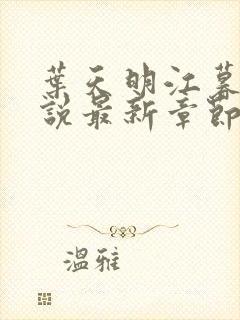 葉天明江暮
說最新章節
溫雅